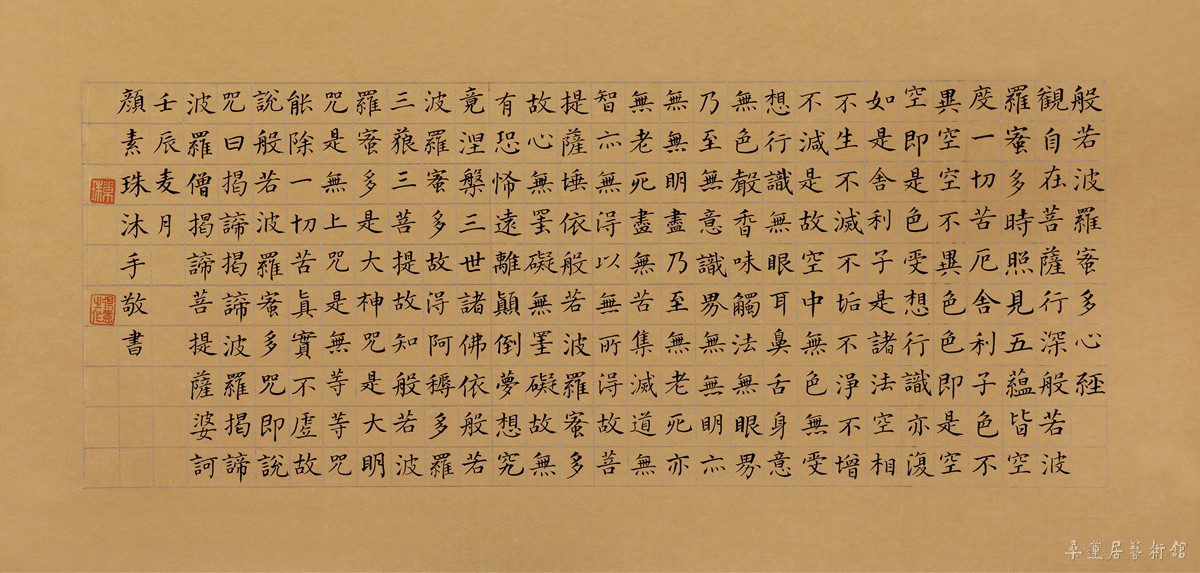 般若波羅蜜多心經
觀自在菩薩行深般若波
羅蜜多時照見五蘊皆空
度一切苦厄舍利子色不
異空空不異色色即是空
空即是色受想行識亦復
如是舍利子是諸法空相
不生不滅不垢不淨不增
不減是故空中無色無受
想行識無眼耳鼻舌身意
無色聲香味觸法無眼界
乃至無意識界無無明亦
無無明盡乃至無老死亦
無老死盡無苦集滅道無
智亦無得以無所得故菩
提薩埵依般若波羅蜜多
故心無罣礙無罣礙故無
有恐怖遠離顛倒夢想究
竟涅槃三世諸佛依般若
波羅蜜多故得阿耨多羅
三藐三菩提故知般若波
羅蜜多是大神咒是大明
咒是無上咒是無等等咒
能除一切苦真實不虛故
說般若波羅蜜多咒即說
咒曰揭諦揭諦波羅揭諦
波羅僧揭諦菩提薩婆訶
壬辰麦月
顏素珠沐手敬書
桑蓮居藝術館